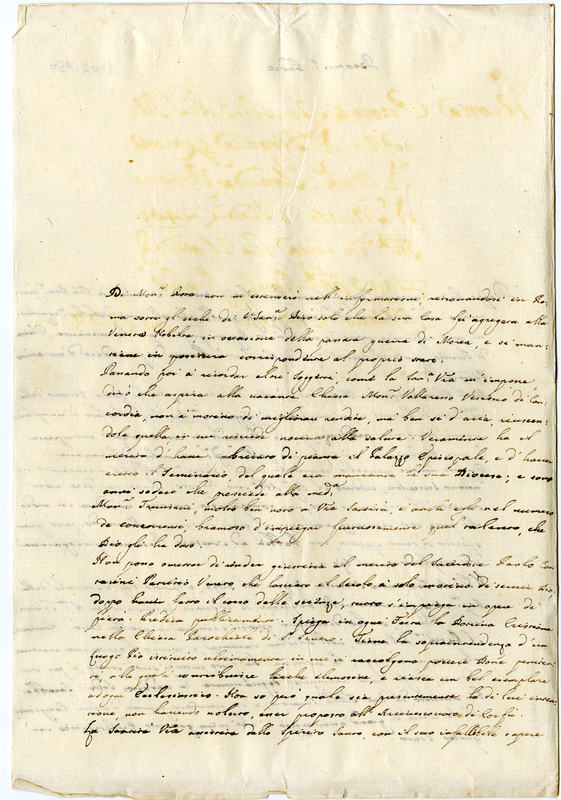 Di Mon.r Rosa non m'estenderò nell'informazioni, ritrovandosi in Ro-
ma sotto gli occhi di V. San.tà Dirò solo che la sua Casa fù aggregata alla
Veneta Nobiltà, in occasione della passata guerra di Morea, e si man-
tiene in positura corrispondente al proprio stato.
Passando poi à ricordar altri Soggetti, come la San.tà V.ra m'impone,
dirò che aspira alla vacante Chiesa Mon.r Vallaresso Vescovo di Con-
cordia, non à motivo di migliorar rendite, mà ben sì d'aria, riuscen-
dole quella, in cui risiede nociva alla salute. Veramente hà il
merito d'haver di pianta il Palazzo Episcopale, e d'haver
eretto il Seminario, del quale era mancante la sua Diocese; e sono
anni sedeci che presiede alla med.ma
Mon.r Trevisani, molto ben noto à V.ra Santità, è anch'egli nel numero
de concorrenti bramoso d'impiegar quei talenti, che
Dio gli hà dato.
Non posso ometter di render giustitia al merito del Sacerdote Paolo Con-
tarini Patritio Veneto, che lasciato il Secolo à solo motivo di servir Dio,
doppo haver fatto il corso delle scienze, tutto s'impiega in opere di
pietà. Predica publicamente. Spiega in ogni Festa la Dottrina Cristiana
nella Chiesa Parochiale di S. Tiene la sopraintendenza d'un
luogo Pio instituito ultimamente in cui si raccolgono povere Done peniten-
ti, alle quali contribuisce larghe elemosine, e riesce un bel esemplare
ad ogni Ecclesiastico. Non so però quale sia presentemente la di lui inten-
zione, non havendo voluto, esser proposto all'Arcivescovato di Corfù.
La Santità V.ra assistita dallo Spirito Santo, con il suo infallibile sapere